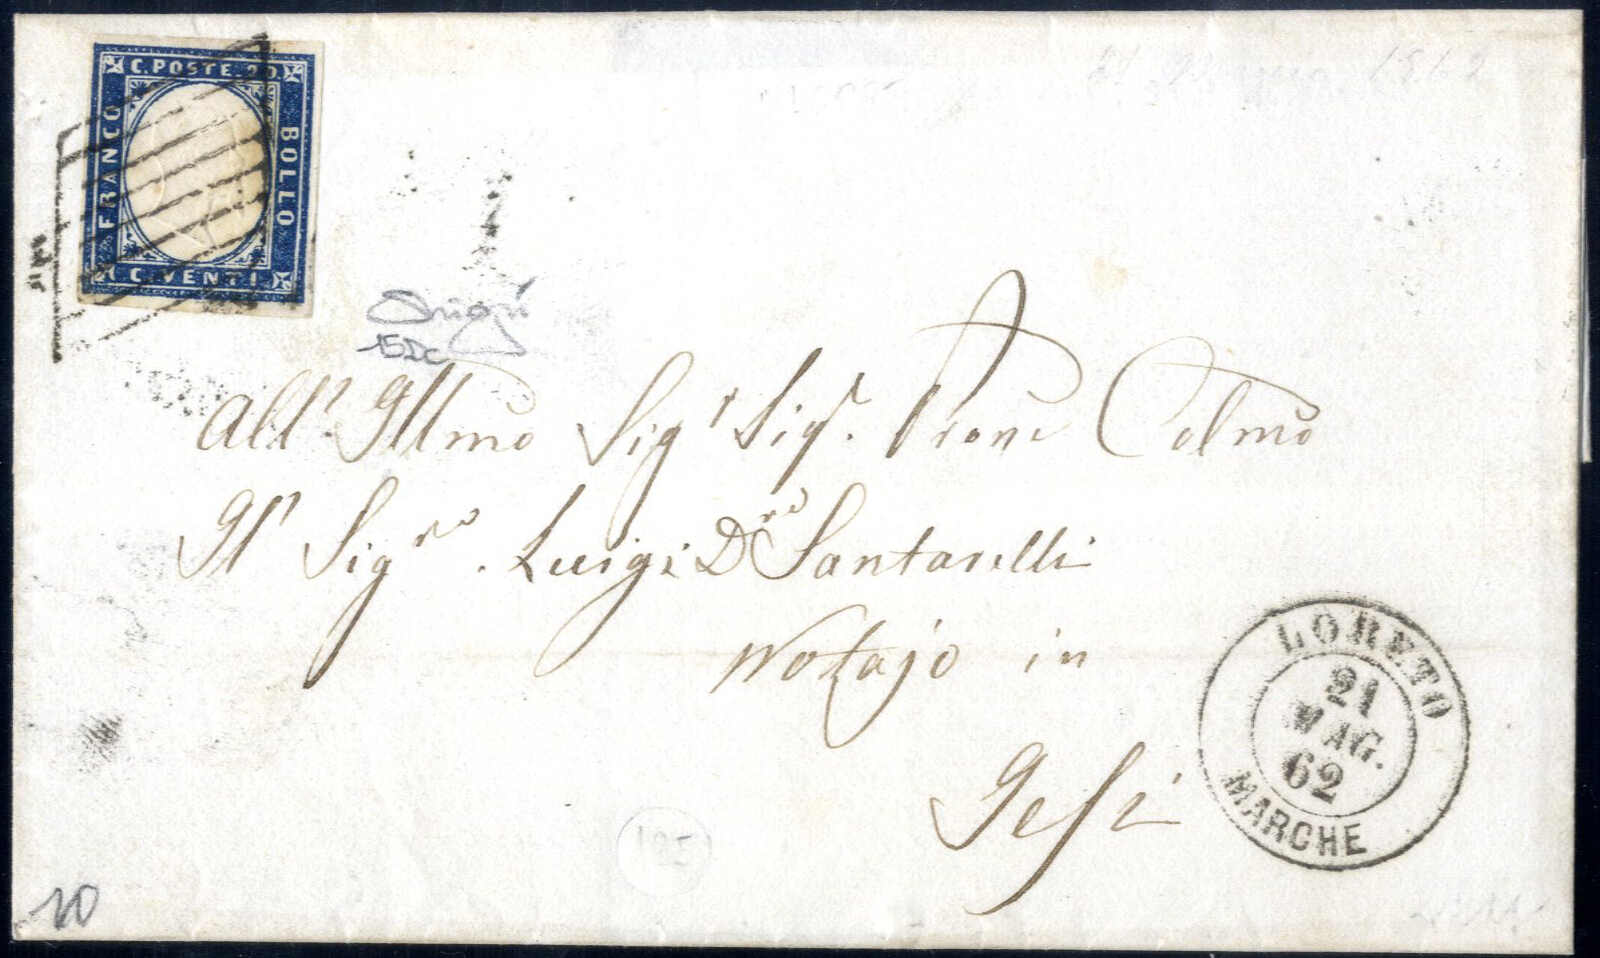 C. POSTE. 20.
FRANCO
BOLLO
C. VENTI
15Dc
All' Illmo Sigr Sigr. Prone Colmo
Il Sigro. Luigi Dro Santarelli
Notajo in
Jesi
LORETO
21
MAG.
62
MARCHE
185
20